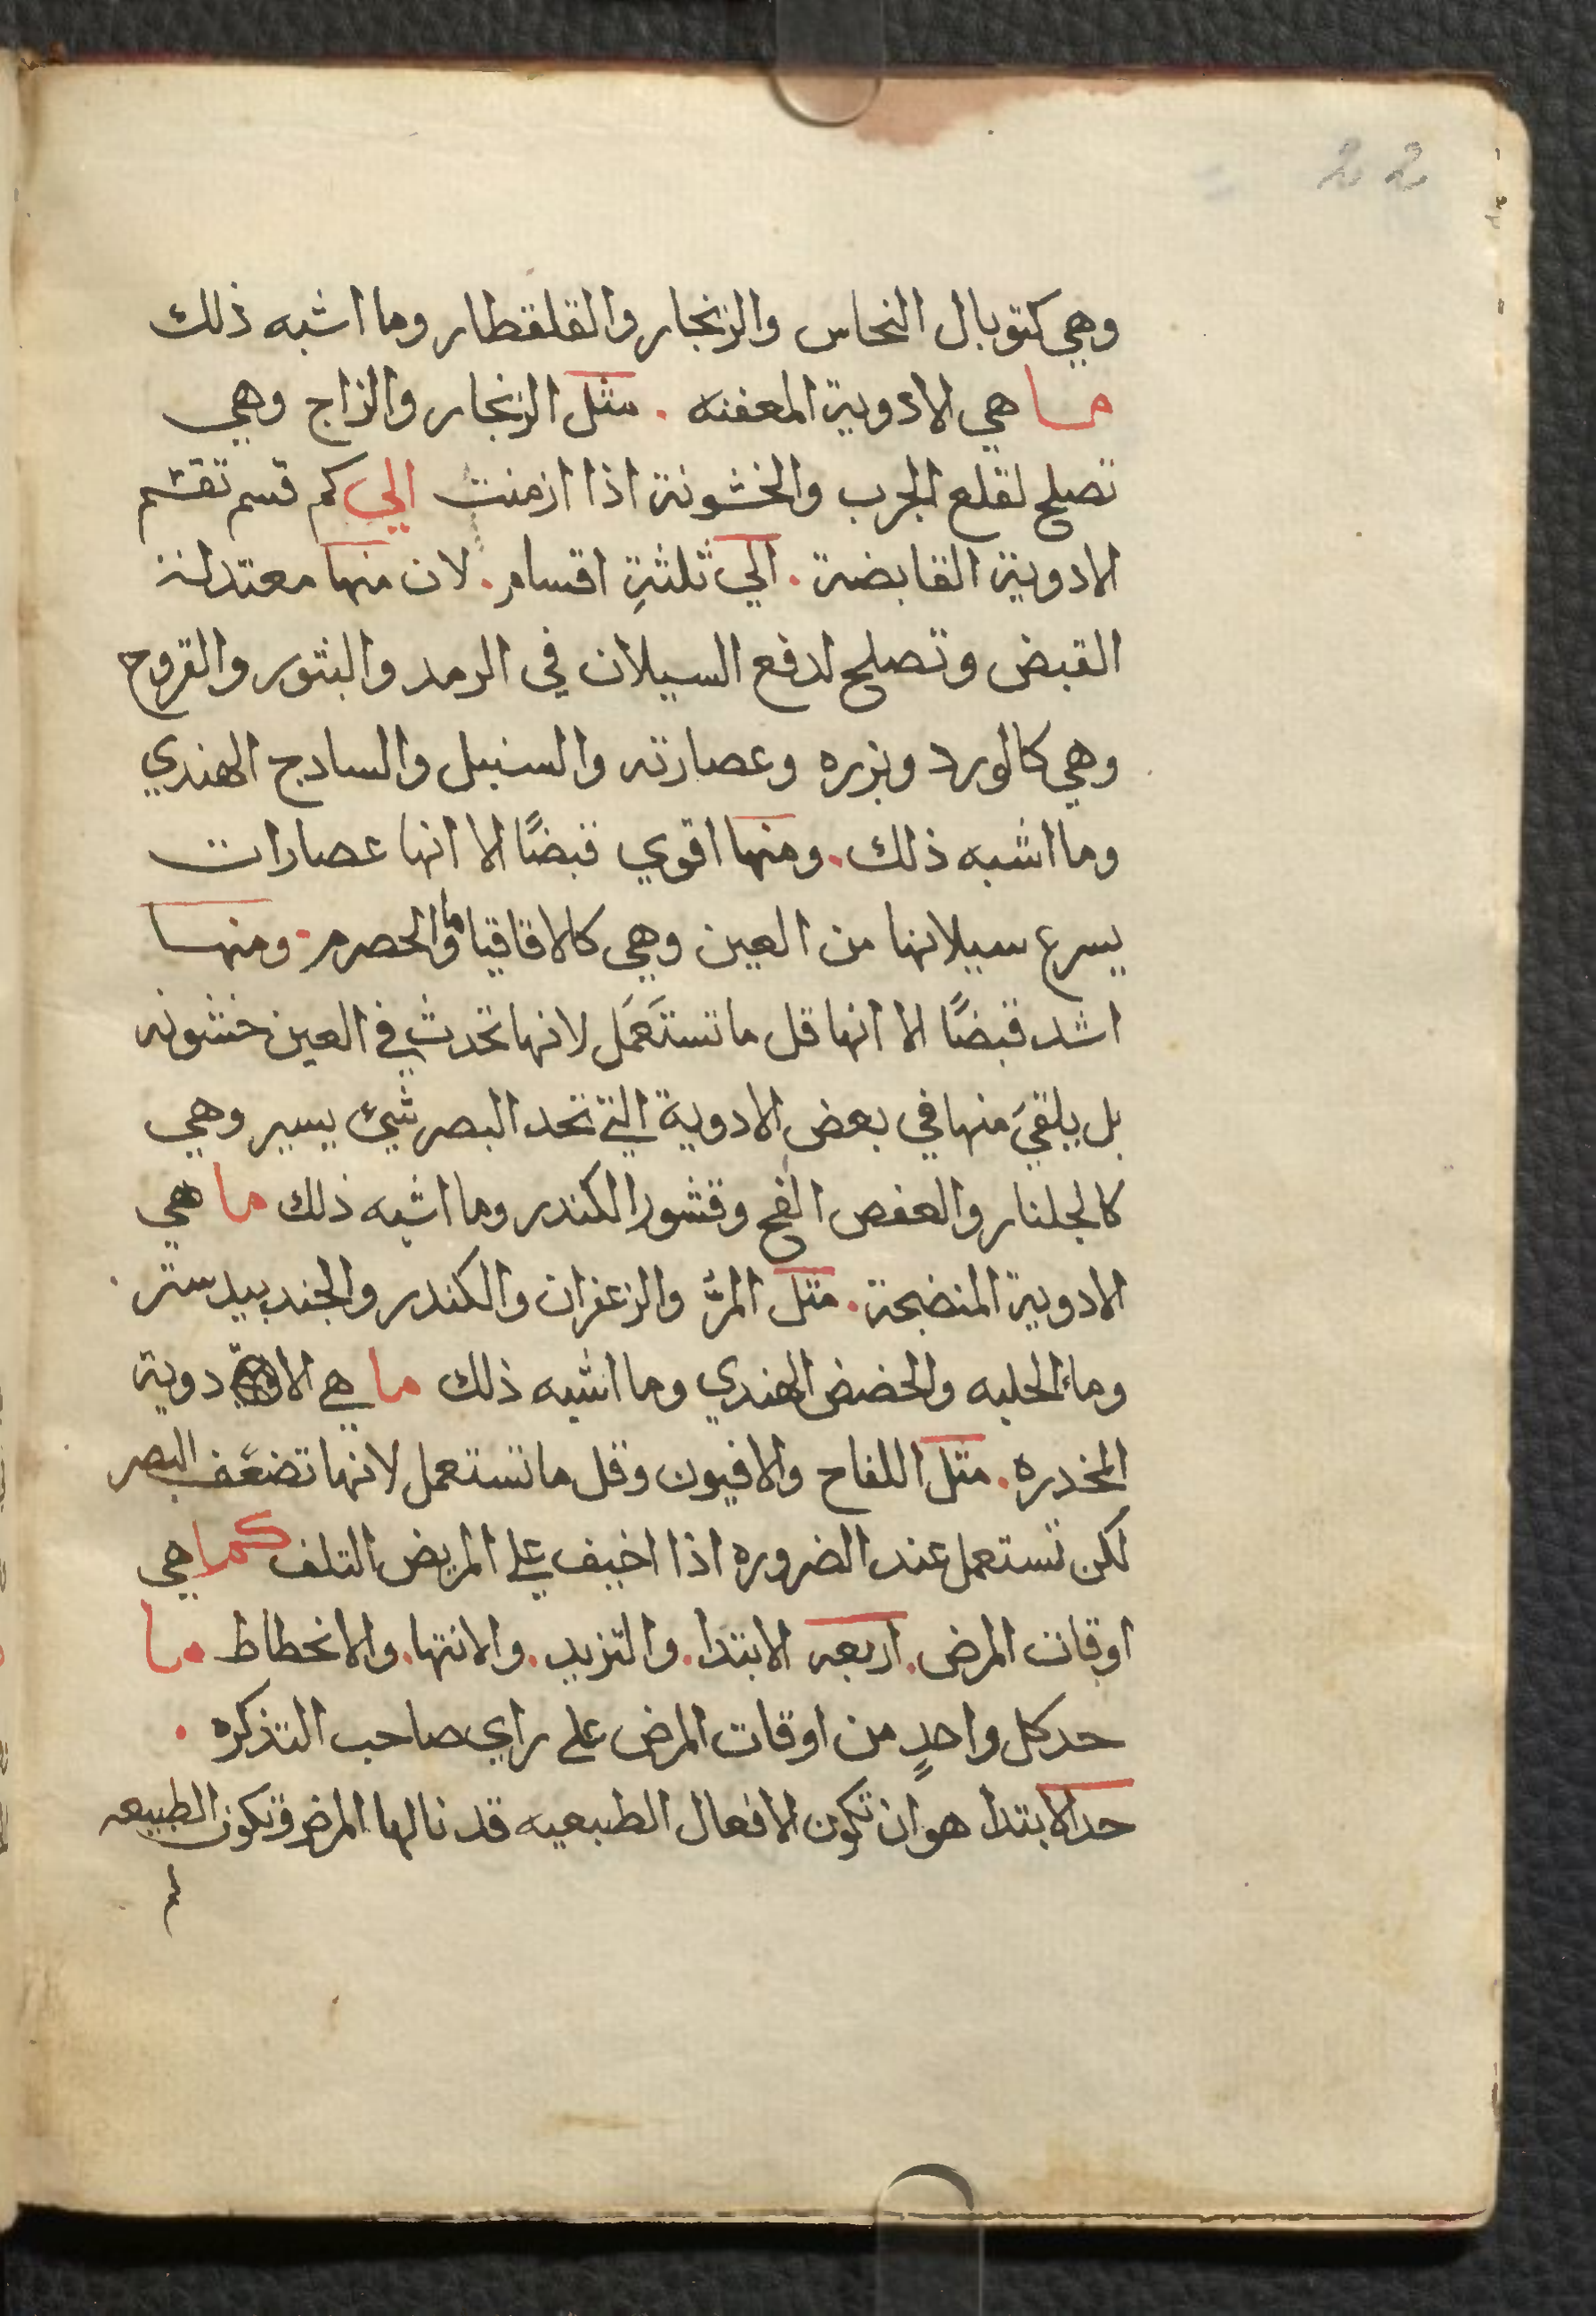 22
وهي كتوبال النحاس والزنجار والقلقطار وما اشبه ذلك
ما هي الادوية المعفنه . مثل الزنجار والزاج وهي
تصلح لقلع الجرب والخشونة اذا ازمنت الي كم قسم تقسم
الادوية القابضة . الي ثلثةِ اقسام . لان منها معتدلة
القبض وتصلح لدفع السيلان في الرمد والبثور والقروح
وهي كالورد وبزره وعصارته والسنبل والسادج الهندي
وما اشبه ذلك . ومنها اقوي قبضًا الا انها عصارات
يسرع سيلانها من العين وهي كالاقاقيا وما الحصرم . ومنها
اشد قبضًا الا انها قل ما تستَعمَل لانها تحدث في العين خشونه
بل يلقيَ منها في بعض الادوية التي تحد البصر شيئ يسير وهي
كالجلنار والعفص الفج وقشور الكندر وما اشبه ذلك ما هي
الادوية المنضجة . مثل المرّ والزعفران والكندر والجندبيدستر .
وماء الحلبه والحضض الهندي وما اشبه ذلك ما هي الادوية
المخدره . مثل اللفاح والافيون وقل ما تستعمل لانها تضعف البصر
لكن تستعمل عند الضروره اذا اخيف علي المريض التلف كما هي
اوقات المرض . اربعه الابتدا . والتزيد . والانتها . والانحطاط ما
حد كل واحدٍ من اوقات المرض علي راي صاحب التذكره .
حد الابتدا هو ان تكون الافعال الطبيعيه قد نالها المرض وتكون الطبيعه